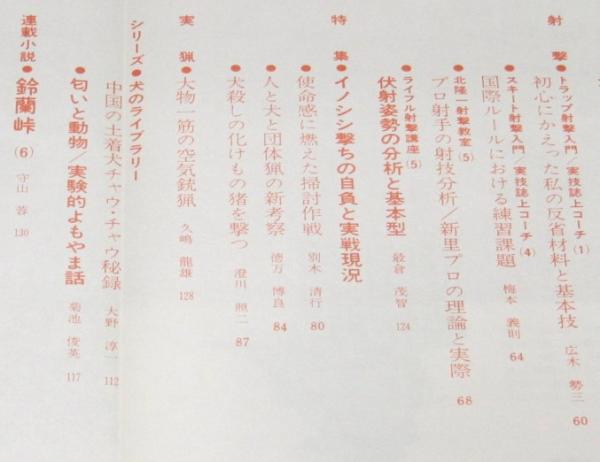 射撃
●トラップ射撃入門/実技誌上コーチ(1)
初心にかえった私の反省材料と基本技 広木勢三 60
●スキート射撃入門/実技誌上コーチ(4)
国際ルールにおける練習課題 梅本義則 64
●北隆一射撃教室(5)
プロ射手の射技分析/新里プロの理論と実際 68
●ライフル射撃講座(5)
伏射姿勢の分析と基本型 最倉茂智 124
特集●イノシシ撃ちの自負と実戦現況
●使命感に燃えた掃討作戦 別木清行 80
●人と犬と団体猟の新考察 徳万博良 84
●犬殺しの化けもの猪を撃つ 澄川照二 87
実猟●大物一筋の空気銃猟 久嶋龍雄 128
シリーズ●犬のライブラリー
中国の土着犬チャウ・チャウ秘録 大野淳一 112
●匂いと動物/実験的よもやま話 菊池俊英 117
連載小説●鈴蘭峠(6) 守山蓉 130